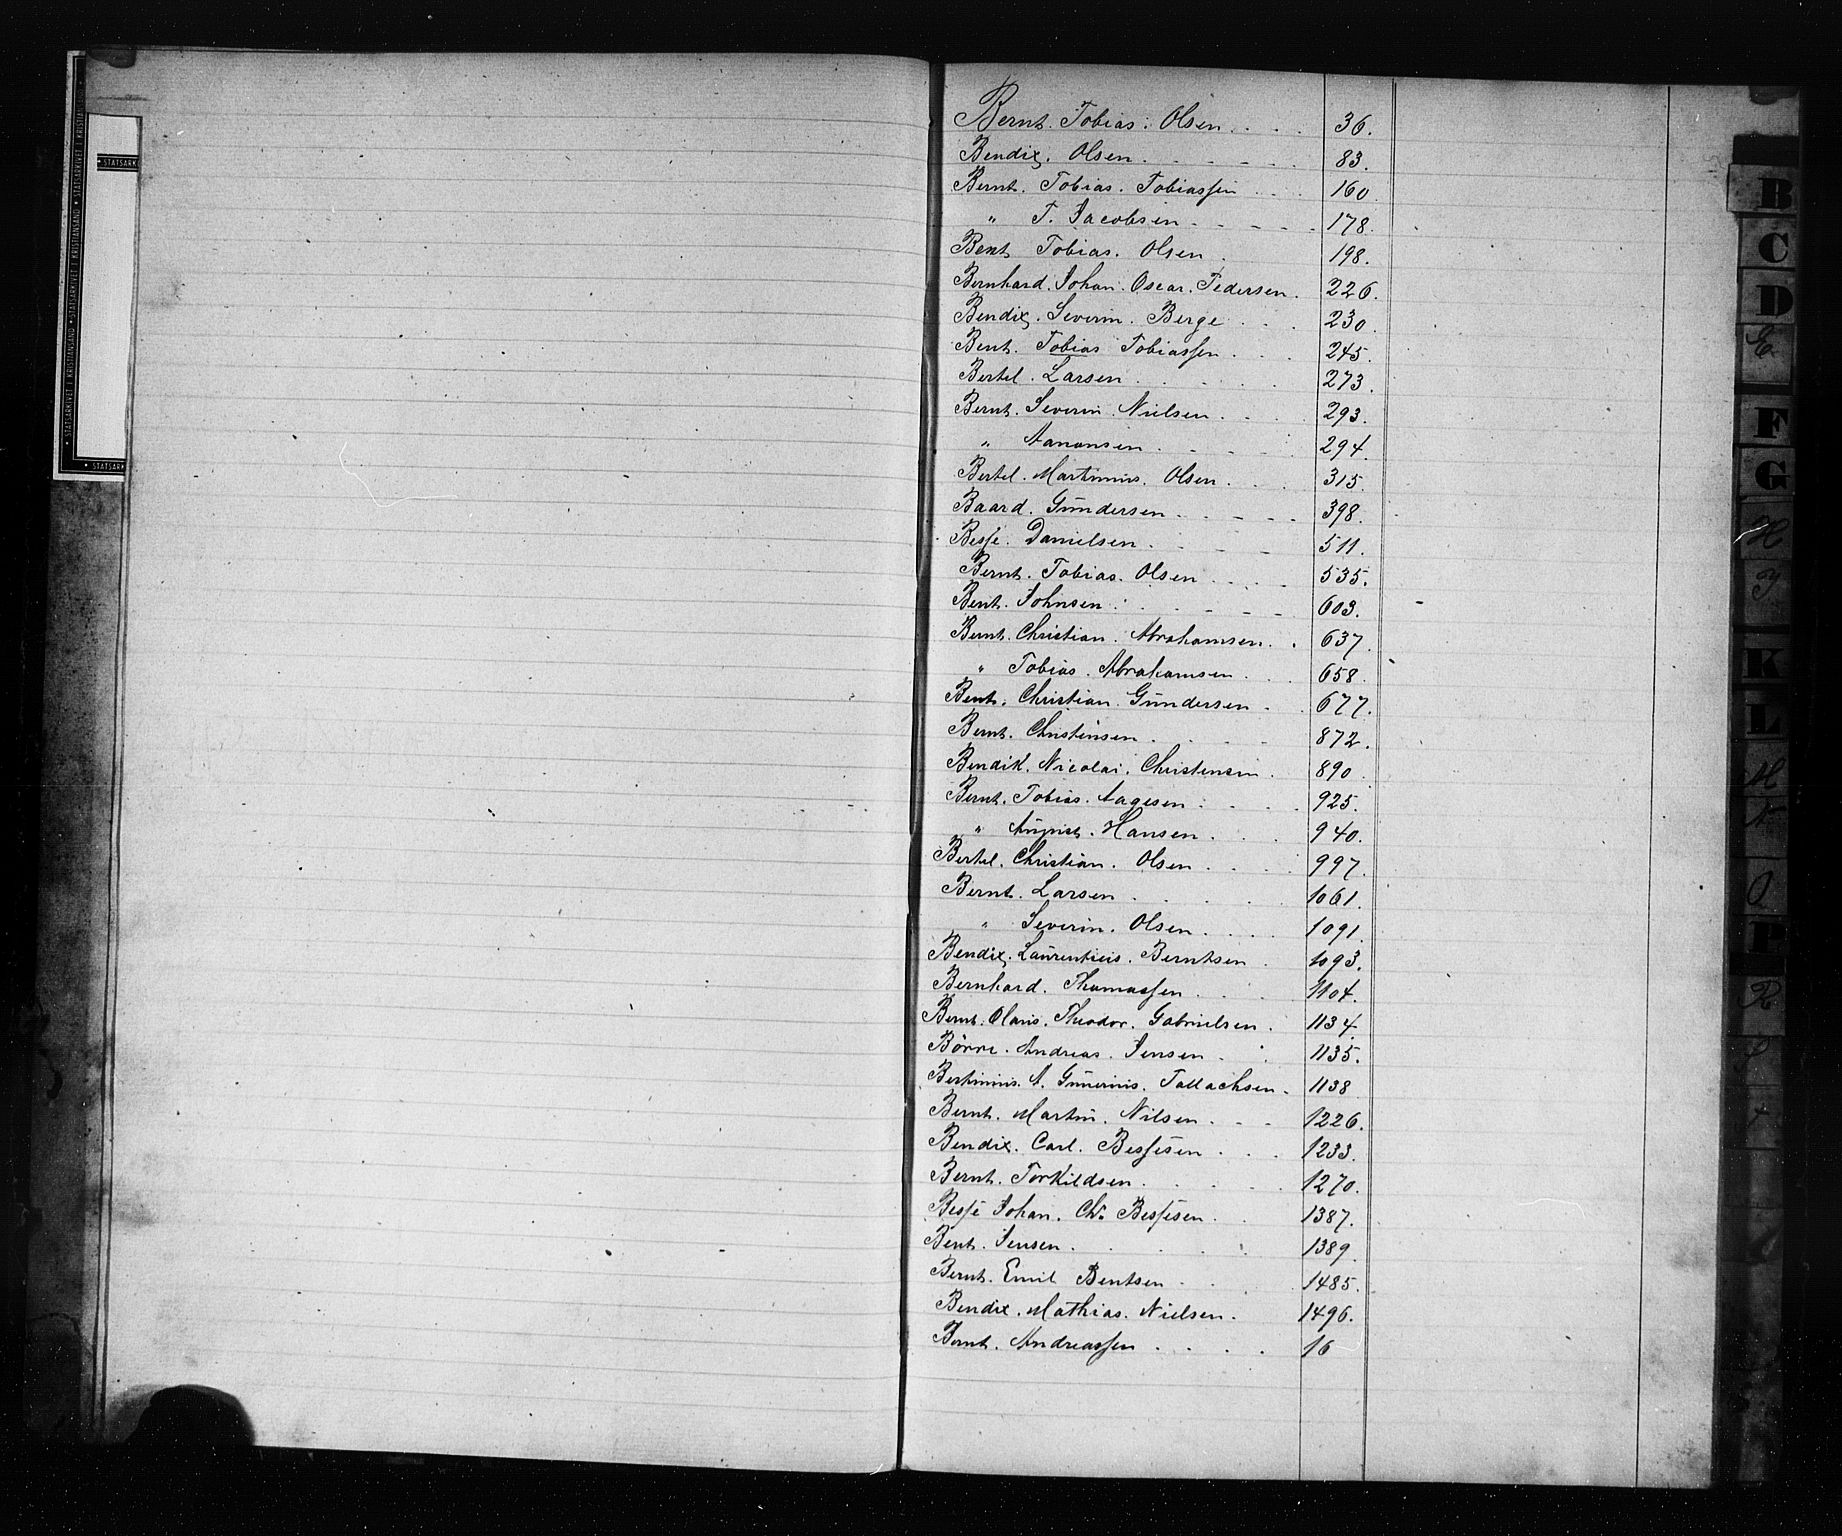 STATSARKIVET I KRISTIANSAND
Bernt. Tobias. Olsen 36.
Bendix. Olsen 83.
Bernt. Tobias. Tobiassen 160
" T. Jacobsen 178.
Bent Tobias. Olsen 198.
Bernhard. Johan. Oscar. Pedersen. 226.
Bendix. Severin. Berge 230.
Bent. Tobias Tobiassen 245.
Bertel. Larsen 273.
Bernt. Severin. Nielsen 293.
" Aanonsen 294.
Bertel. Martinius. Olsen 315.
Baard. Gundersen 398.
Besse. Danielsen 511.
Bernt. Tobias. Olsen 535.
Bent. Johnsen 603.
Bernt. Christian. Abrahamsen. 637.
" Tobias. Abrahamsen 658.
Bent. Christian. Gundersen 677.
Bernt. Christensen 872.
Bendik. Nicolai. Christensen. 890.
Bernt. Tobias. Aagesen 925.
" August. Hansen 940.
Bertel. Christian. Olsen 997.
Bernt. Larsen 1061.
" Severin. Olsen 1091.
Bendix. Laurentius. Berntsen 1093.
Bernhard. Thomassen 1104.
Bernt. Olaus. Theodor. Gabrielsen. 1134.
Börre. Andreas. Jensen 1135.
Bertinius. A. Gunerius. Tallachsen 1138
Bernt. Martin. Nilsen 1226.
Bendix. Carl. Bessesen 1233.
Bernt. Torkildsen 1270.
Besse Johan. Chr. Bessesen 1387.
Bent. Jensen 1389.
Bernt. Emil Bentsen 1485.
Bendix. Mathias. Nielsen 1496.
Bernt. Andreassen 16
B
C
D
E
F
G
H
K
L
M
O
P
R